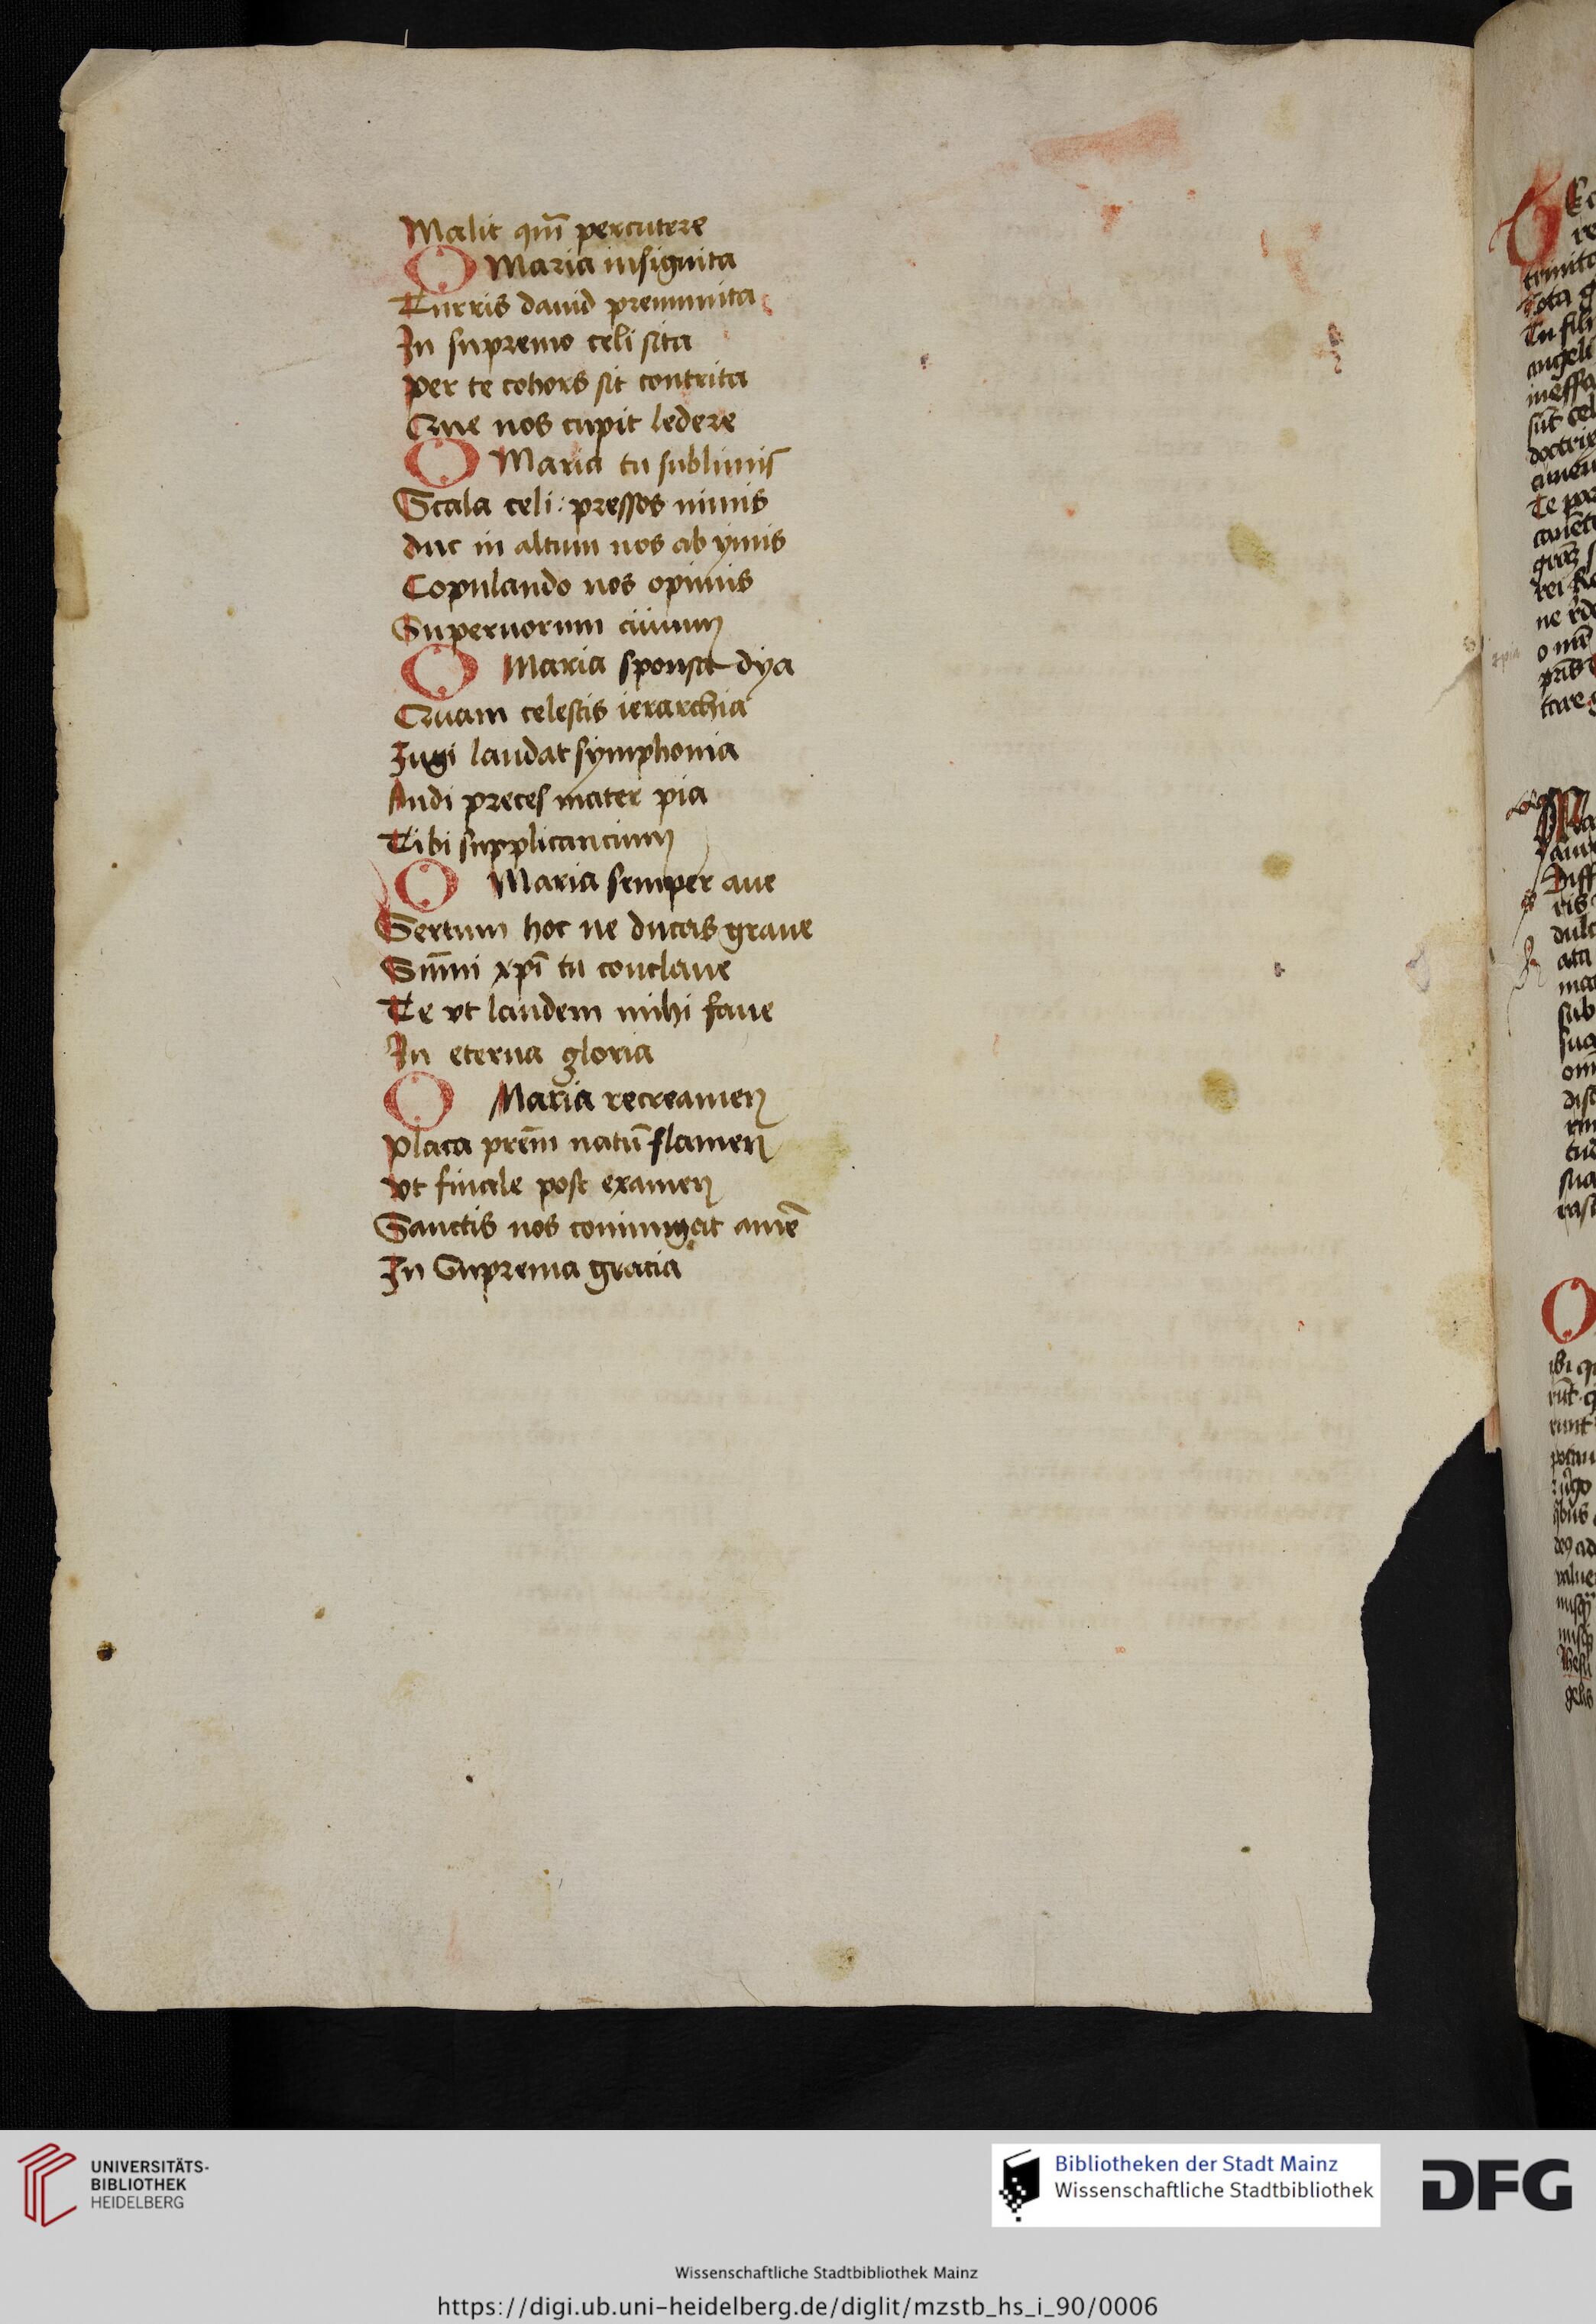 Malit qm̄ percutere
O Maria insignita
Turris dauid premunita
In supremo celi sita
per te cohors sit contrita
Que nos cupit ledere
O Maria tu sublimis
Scala celi : pressos nimis
duc in altum nos ab ymis
Copulando nos opimis
Supernorum ciuium
O Maria sponsa dya
Quam celestis ierarchia
Jugi laudat symphonia
Audi preces mater pia
Tibi supplicancium
O Maria semper aue
Sertum hoc ne ducas graue
Sūmi xpī tu conclaue
Te vt laudem mihi faue
In eterna gloria
O Maria recreamen
placa prēm natū flamen
vt finale post examen
Sanctis nos coniungat amē
In Suprema gracia
UNIVERSITÄTS-
BIBLIOTHEK
HEIDELBERG
Bibliotheken der Stadt Mainz
Wissenschaftliche Stadtbibliothek
DFG
Wissenschaftliche Stadtbibliothek Mainz
https://digi.ub.uni-heidelberg.de/diglit/mzstb_hs_i_90/0006